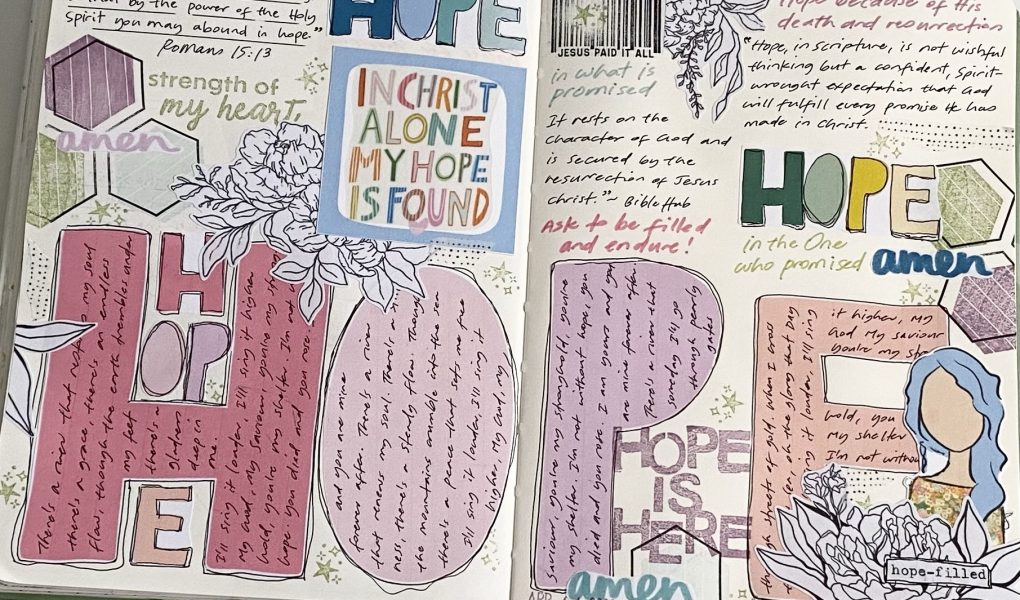 by the power of the Holy
spirit you may abound in hope."
Romans 15:13
HOPE
strength of
my heart,
amen
IN CHRIST
ALONE
MY HOPE
IS FOUND
HOPE
There's a river that my soul
there's a grace there's an endless
flow, though the earth trembles under
my feet
there's a
gladness
deep in
me.
I'll sing it louder, I'll sing it higher
My God, my Saviour you're my
hold, you're my shelter I'm not
hope. You died and you rose.
and you are mine
forever after. There's a river
that renews my soul. There's a
ness, there's a steady flow. Though
the mountains crumble into the sea
there's a peace that sets me free
I'll sing it louder, I'll sing it
higher, My God, my
JESUS PAID IT ALL
in what is
promised
It rests on the
character of God and
is secured by the
resurrection of Jesus
Christ." ~ BibleHub
Ask to be filled
and endure!
Hope because of His
death and resurrection
"Hope, in scripture, is not wishful
thinking but a confident, Spirit-
wrought expectation that God
will fulfill every promise He has
made in Christ.
HOPE
in the One
who promised
amen
Saviour, you're my stronghold, you're
my shelter I'm not without hope, you
died and you rose. I am yours and you
are mine forever after.
There's a river that
someday I'll go
through pearly
gates
HOPE
IS
HERE
amen
APR
streets of gold, when I cross
ever, oh the glory that day
sing it louder, I'll sing
it higher, my
God My saviour
you're my
hold, you
my shelter
I'm not without
hope-filled